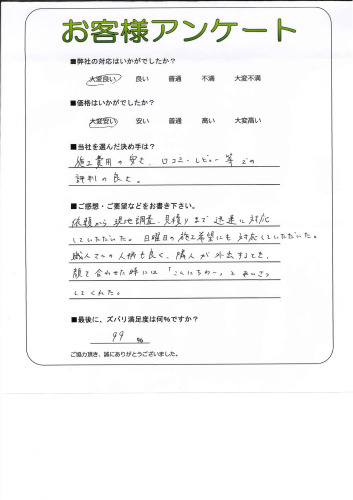 お客様アンケート
■弊社の対応はいかがでしたか？
大変良い 良い 普通 不満 大変不満
■価格はいかがでしたか？
大変安い 安い 普通 高い 大変高い
■当社を選んだ決め手は？
施工費用の安さ、口コミ・レビュー等での
評判の良さ。
■ご感想・ご要望などをお書き下さい。
依頼から現地調査、見積りまで迅速に対応
していただいた。日曜日の施工希望にも対応していただいた。
職人さんの人柄も良く、隣人が外出するとき、
顔を合わせた時には「こんにちわー」とあいさつ
してくれた。
■最後に、ズバリ満足度は何%ですか？
99 %
ご協力頂き、誠にありがとうございました。